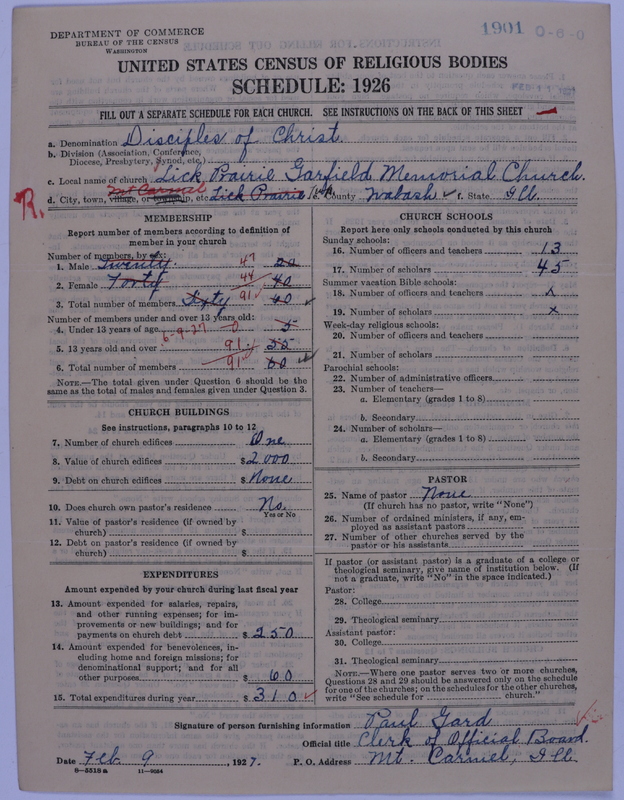 DEPARTMENT OF COMMERCE
BUREAU OF THE CENSUS
WASHINGTON
1901 0-6-0
UNITED STATES CENSUS OF RELIGIOUS BODIES
SCHEDULE: 1926
FILL OUT A SEPARATE SCHEDULE FOR EACH CHURCH. SEE INSTRUCTIONS ON THE BACK OF THIS SHEET
a. Denomination Disciples of Christ.
b. Division (Association, Conference,
Diocese, Presbytery, Synod, etc.)
c. Local name of church Lick Prairie Garfield Memorial Church.
d. City, town, village, or township, etc. Mt Carmel Lick Prairie e. County Wabash f. State Ill.
R.
MEMBERSHIP
Report number of members according to definition of
member in your church
Number of members, by sex:
1. Male Twenty. 47 20
2. Female Forty 44 40
3. Total number of members Sixty 91 60
Number of members under and over 13 years old:
4. Under 13 years of age 6-9-27 0 5
5. 13 years old and over 91 55
6. Total number of members 91 60
NOTE.—The total given under Question 6 should be the
same as the total of males and females given under Question 3.
CHURCH BUILDINGS
See instructions, paragraphs 10 to 12
7. Number of church edifices One
8. Value of church edifices $2000
9. Debt on church edifices $None
10. Does church own pastor's residence No.
Yes or No
11. Value of pastor's residence (if owned by
church) $
12. Debt on pastor's residence (if owned by
church) $
EXPENDITURES
Amount expended by your church during last fiscal year
13. Amount expended for salaries, repairs,
and other running expenses; for im-
provements or new buildings; and for
payments on church debt $250
14. Amount expended for benevolences, in-
cluding home and foreign missions; for
denominational support; and for all
other purposes $60
15. Total expenditures during year $310
CHURCH SCHOOLS
Report here only schools conducted by this church
Sunday schools:
16. Number of officers and teachers 13
17. Number of scholars 45
Summer vacation Bible schools:
18. Number of officers and teachers x
19. Number of scholars x
Week-day religious schools:
20. Number of officers and teachers
21. Number of scholars
Parochial schools:
22. Number of administrative officers
23. Number of teachers—
a. Elementary (grades 1 to 8)
b. Secondary
24. Number of scholars—
a. Elementary (grades 1 to 8)
b. Secondary
PASTOR
25. Name of pastor None
(If church has no pastor, write "None")
26. Number of ordained ministers, if any, em-
ployed as assistant pastors
27. Number of other churches served by the
pastor or his assistants
If pastor (or assistant pastor) is a graduate of a college or
theological seminary, give name of institution below. (If
not a graduate, write "No" in the space indicated.)
Pastor:
28. College
29. Theological seminary
Assistant pastor:
30. College
31. Theological seminary
NOTE.—Where one pastor serves two or more churches,
Questions 28 and 29 should be answered only on the schedule
for one of the churches; on the schedules for the other churches,
write "See schedule for church."
Signature of person furnishing information Paul Gard
Official title Clerk of Official Board.
Date Feb 9, 1927. P. O. Address Mt. Carmel, Ill
8—5518a 11—9054